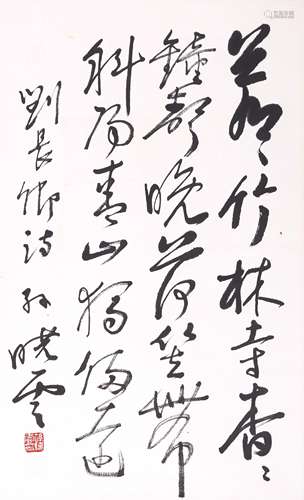 蒼〻竹林寺杳〻
鐘聲晚荷笠帶
斜陽青山獨歸遠
劉長卿詩 孫曉雲